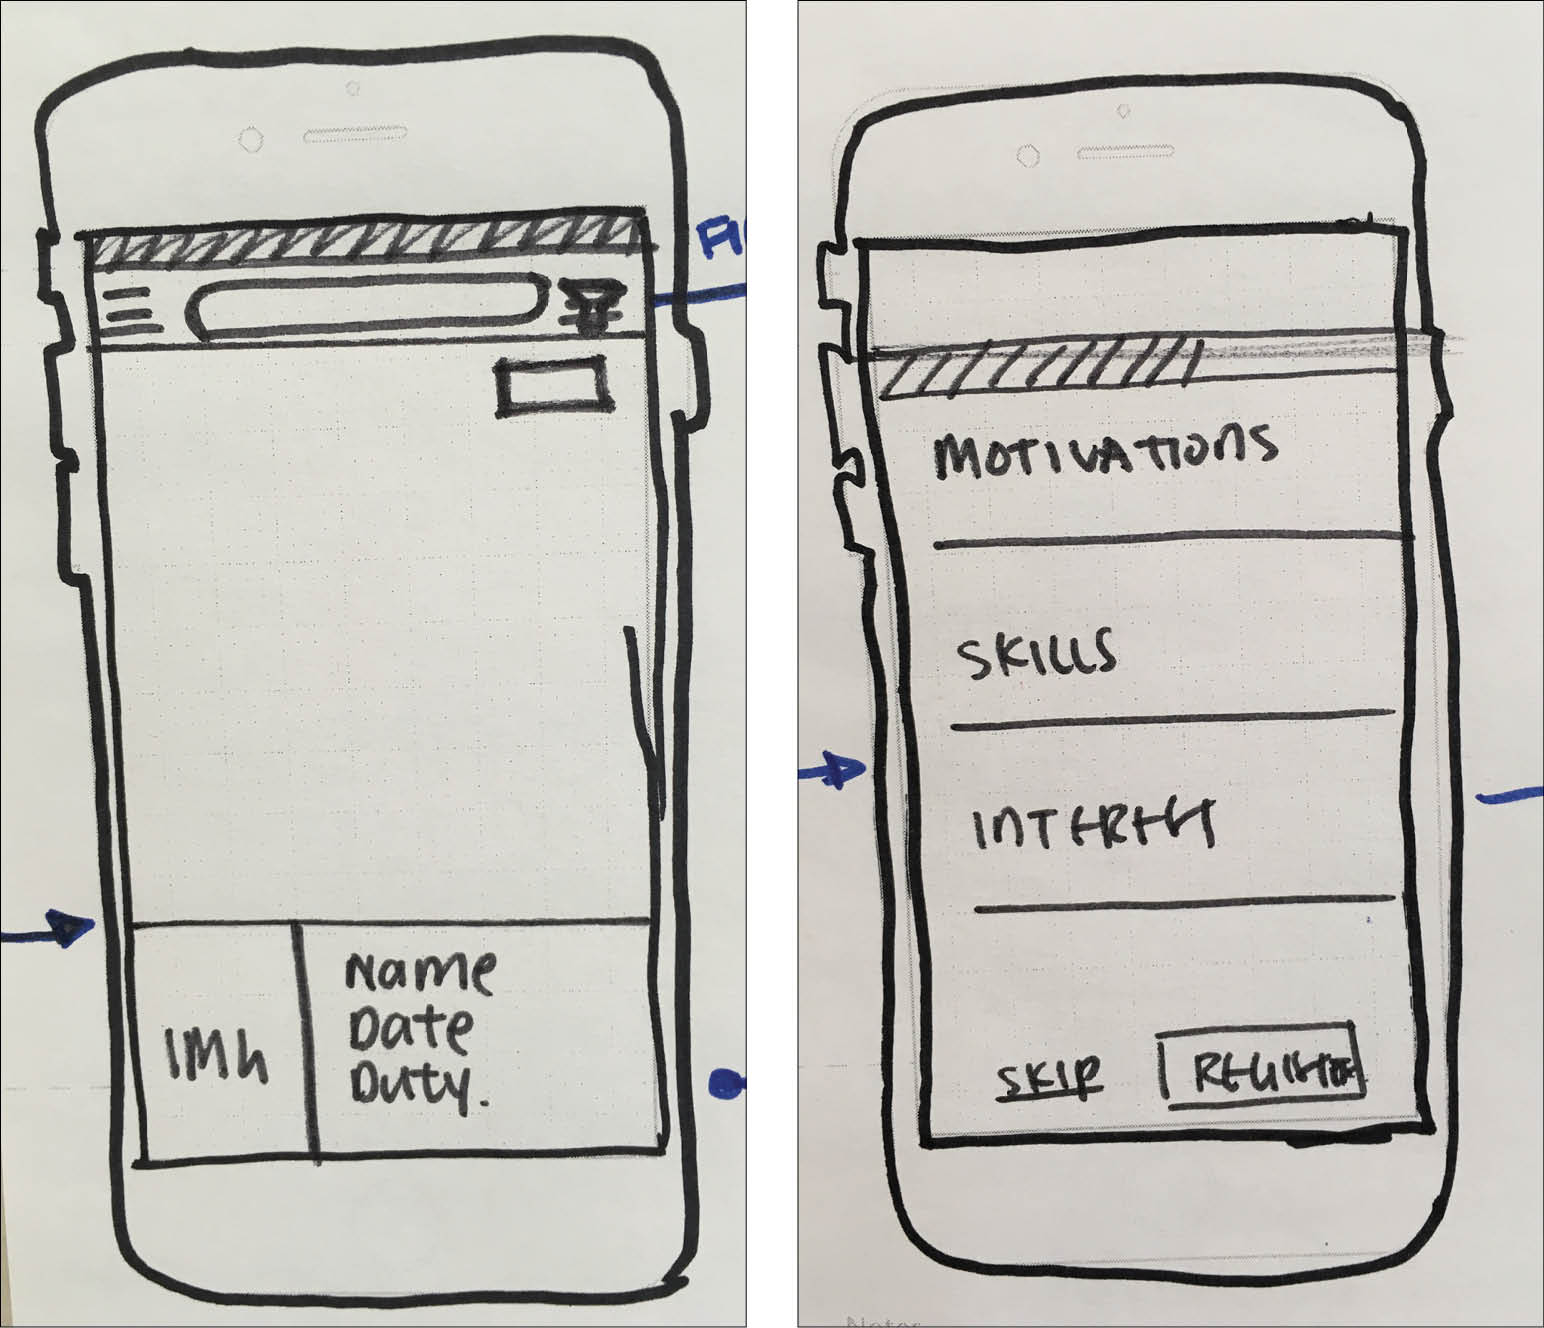 IMG
Name
Date
Duty.
MOTIVATIONS
SKILLS
INTEREST
SKIP REGISTER